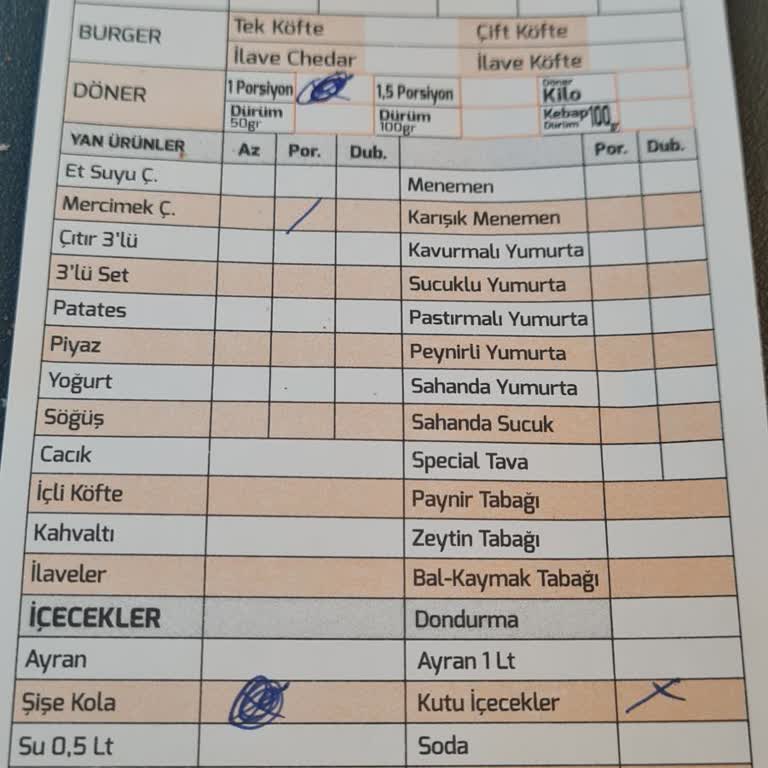 BURGER Tek Köfte Çift Köfte
İlave Chedar İlave Köfte
DÖNER 1 Porsiyon 1,5 Porsiyon Döner Kilo
Dürüm 50gr Dürüm 100gr Kebap Dürüm 100g
YAN ÜRÜNLER Az Por. Dub. Por. Dub.
Et Suyu Ç. Menemen
Mercimek Ç. / Karışık Menemen
Çıtır 3'lü Kavurmalı Yumurta
3'lü Set Sucuklu Yumurta
Patates Pastırmalı Yumurta
Piyaz Peynirli Yumurta
Yoğurt Sahanda Yumurta
Söğüş Sahanda Sucuk
Cacık Special Tava
İçli Köfte Paynir Tabağı
Kahvaltı Zeytin Tabağı
İlaveler Bal-Kaymak Tabağı
İÇECEKLER Dondurma
Ayran Ayran 1 Lt
Şişe Kola Kutu İçecekler
Su 0,5 Lt Soda